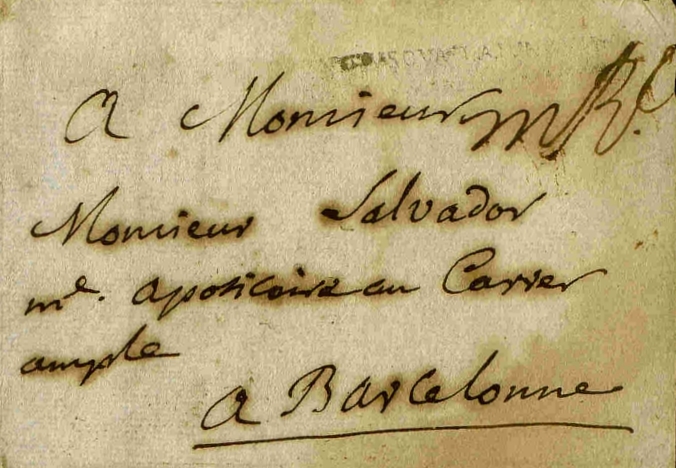 A Monsieur
Monsieur Salvador
me. apoticaire au Carrer
ample
A Barcelonne